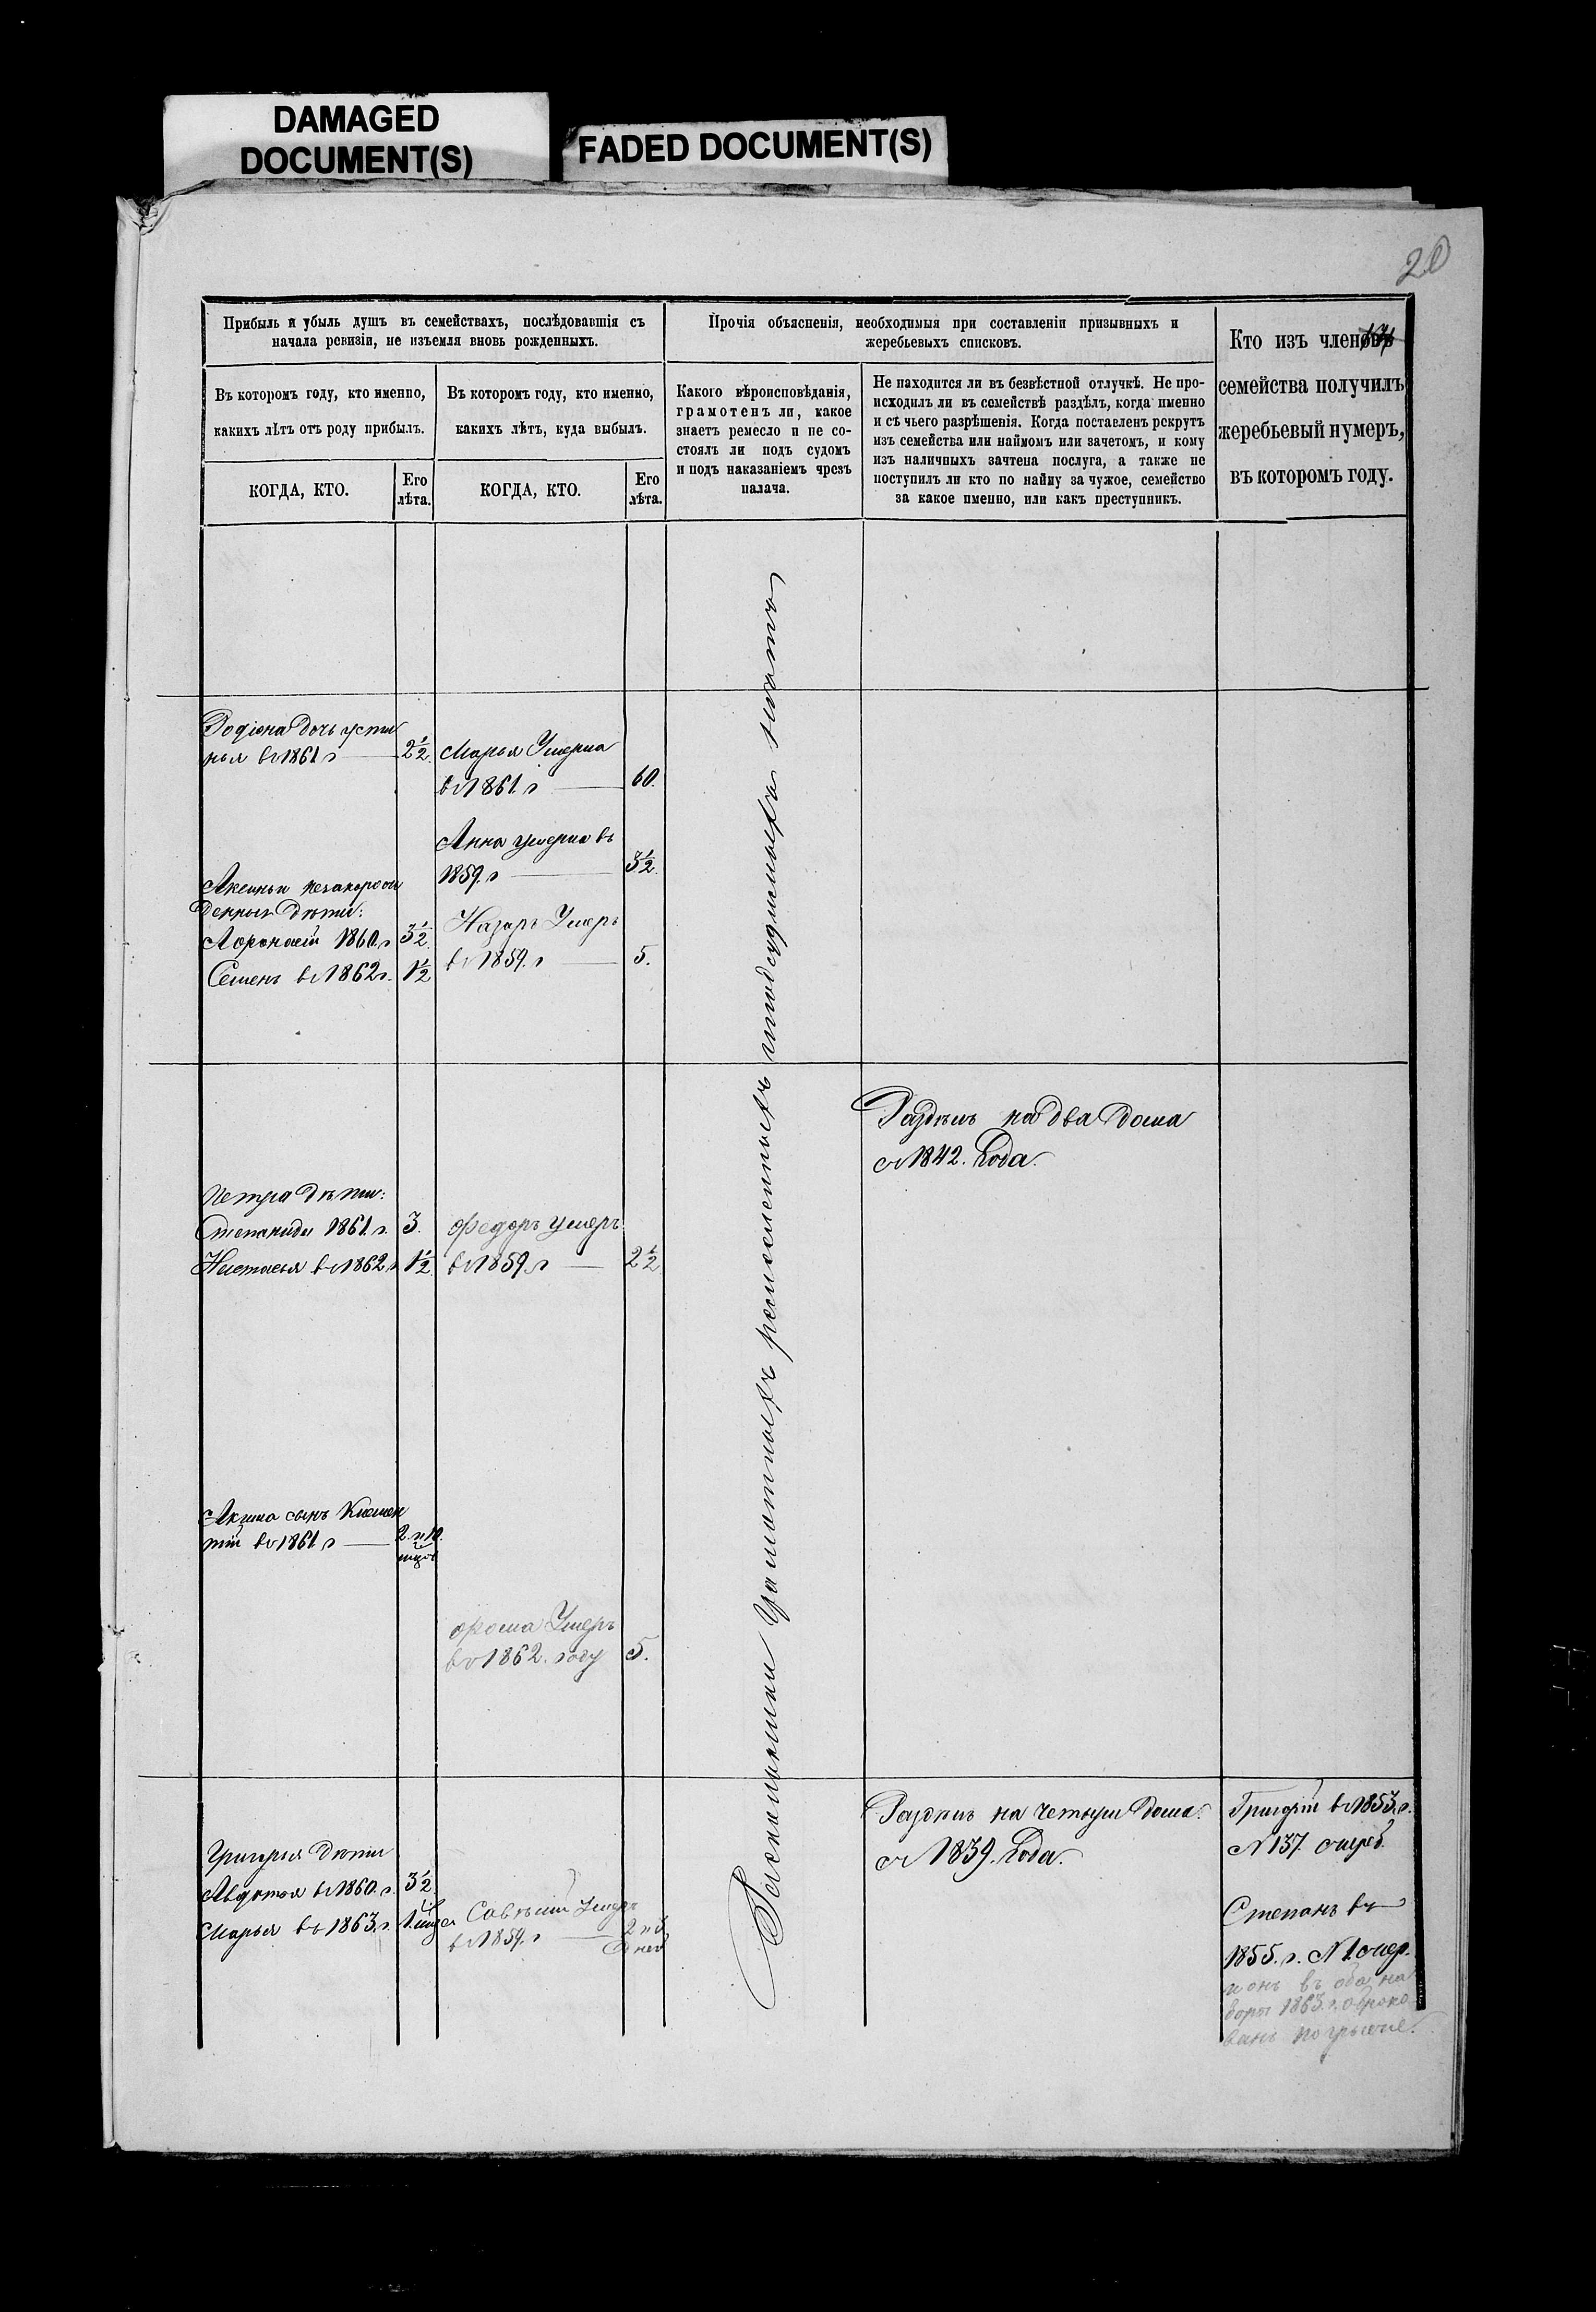 DAMAGED
DOCUMENT(S)
FADED DOCUMENT(S)
20
Прибыль и убыль душъ въ семействахъ, послѣдовавшія съ
начала ревизіи, не изъемля вновь рожденныхъ.
Прочія объясненія, необходимыя при составленіи призывныхъ и
жеребьевыхъ списковъ.
Кто изъ членовъ
семейства получилъ
жеребьевый нумеръ,
въ которомъ году.
Въ которомъ году, кто именно,
какихъ лѣтъ отъ роду прибылъ.
Въ которомъ году, кто именно,
какихъ лѣтъ, куда выбылъ.
Какого вѣроисповѣданія,
грамотенъ ли, какое
знаетъ ремесло и не со-
стоялъ ли подъ судомъ
и подъ наказаніемъ чрезъ
палача.
Не находится ли въ безвѣстной отлучкѣ. Не про-
исходилъ ли въ семействѣ раздѣлъ, когда именно
и съ чьего разрѣшенія. Когда поставленъ рекрутъ
изъ семейства или наймомъ или зачетомъ, и кому
изъ наличныхъ зачтена послуга, а также не
поступилъ ли кто по найму за чужое, семейство
за какое именно, или какъ преступникъ.
КОГДА, КТО.
Его
лѣта.
КОГДА, КТО.
Его
лѣта.
Родіона дочь усти
нья въ 1861 г 2½
Марья Умерла
въ 1861. г 60.
Анна умерла въ
1859. г 3½
Аксиньи незакорож
денныя дѣти:
Афонасій 1860. г 3½
Семенъ въ 1862 г. 1½
Назаръ Умеръ
въ 1859. г 5.
Раздѣлъ на два дома
съ 1842. Года.
Петра дѣти:
Степанида 1861. г. 3.
Настасья въ 1862 г 1½
Федоръ умеръ
въ 1859. г 2½
Акима сынъ Клемен
тій въ 1861 г 2. и 10.
мцов
Фома Умеръ
въ 1862. году 5.
Раскольники Грамотныхъ ремесленныхъ и подсудимыхъ нѣтъ
Раздѣлъ на четыре дома.
съ 1839. Года.
Григорій въ 1853. г.
N 137. очеред.
Степанъ въ
1855. г. N 1. очер.
и онъ въ оба на
боры 1863. г. оброко
ванъ по грыже.
Григорья дѣти
Авдотья въ 1860. г. 3½
Марья въ 1863. г. 1. мца
Савелій умеръ
въ 1859. г 2 и 3
дней